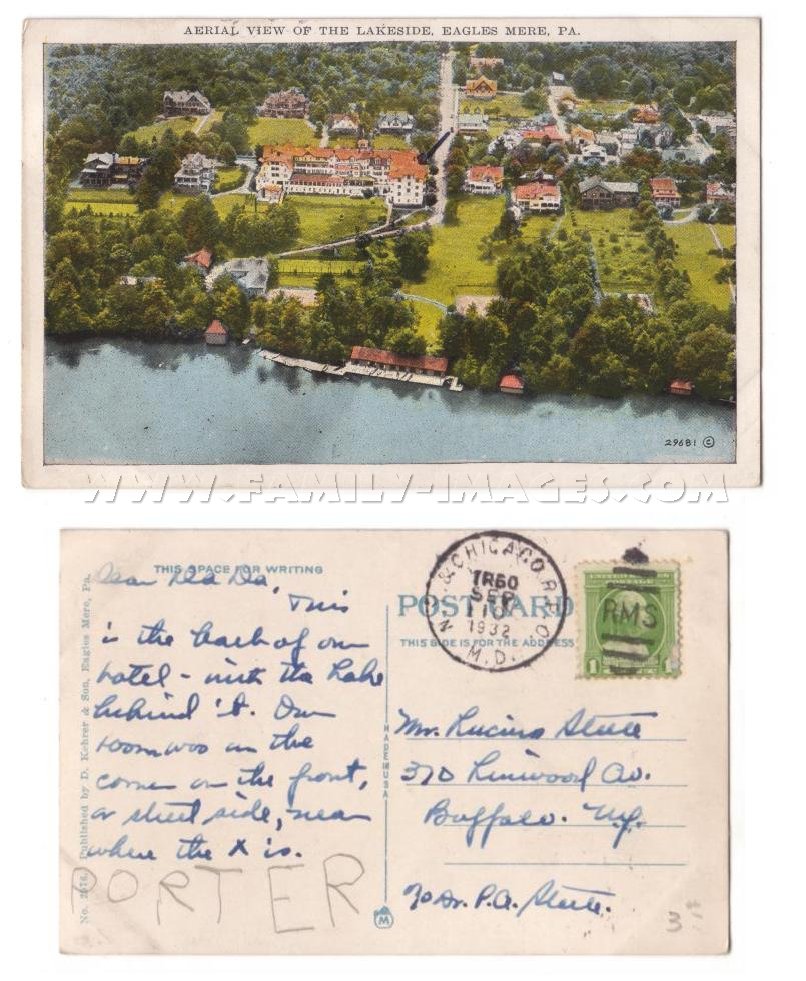 AERIAL VIEW OF THE LAKESIDE, EAGLES MERE, PA.
29681 ©
WWW.FAMILY-IMAGES.COM
THIS SPACE FOR WRITING
Dear Da Da,
This
is the back of our
hotel - with the Lake
behind it. Our
room was on the
corner on the front,
or street side, near
where the X is.
PORTER
No. 2976. Published by D. Kehrer & Son, Eagles Mere, Pa.
MADE IN USA
M
N.Y. & CHICAGO R.P.O.
TR60
SEP
10
1932
M.D.
POST CARD
THIS SIDE IS FOR THE ADDRESS
UNITED STATES POSTAGE
RMS
1
Mr. Lucius Steele
370 Linwood Av.
Buffalo. N.Y.
℅ Dr. P.A. Steele.
3